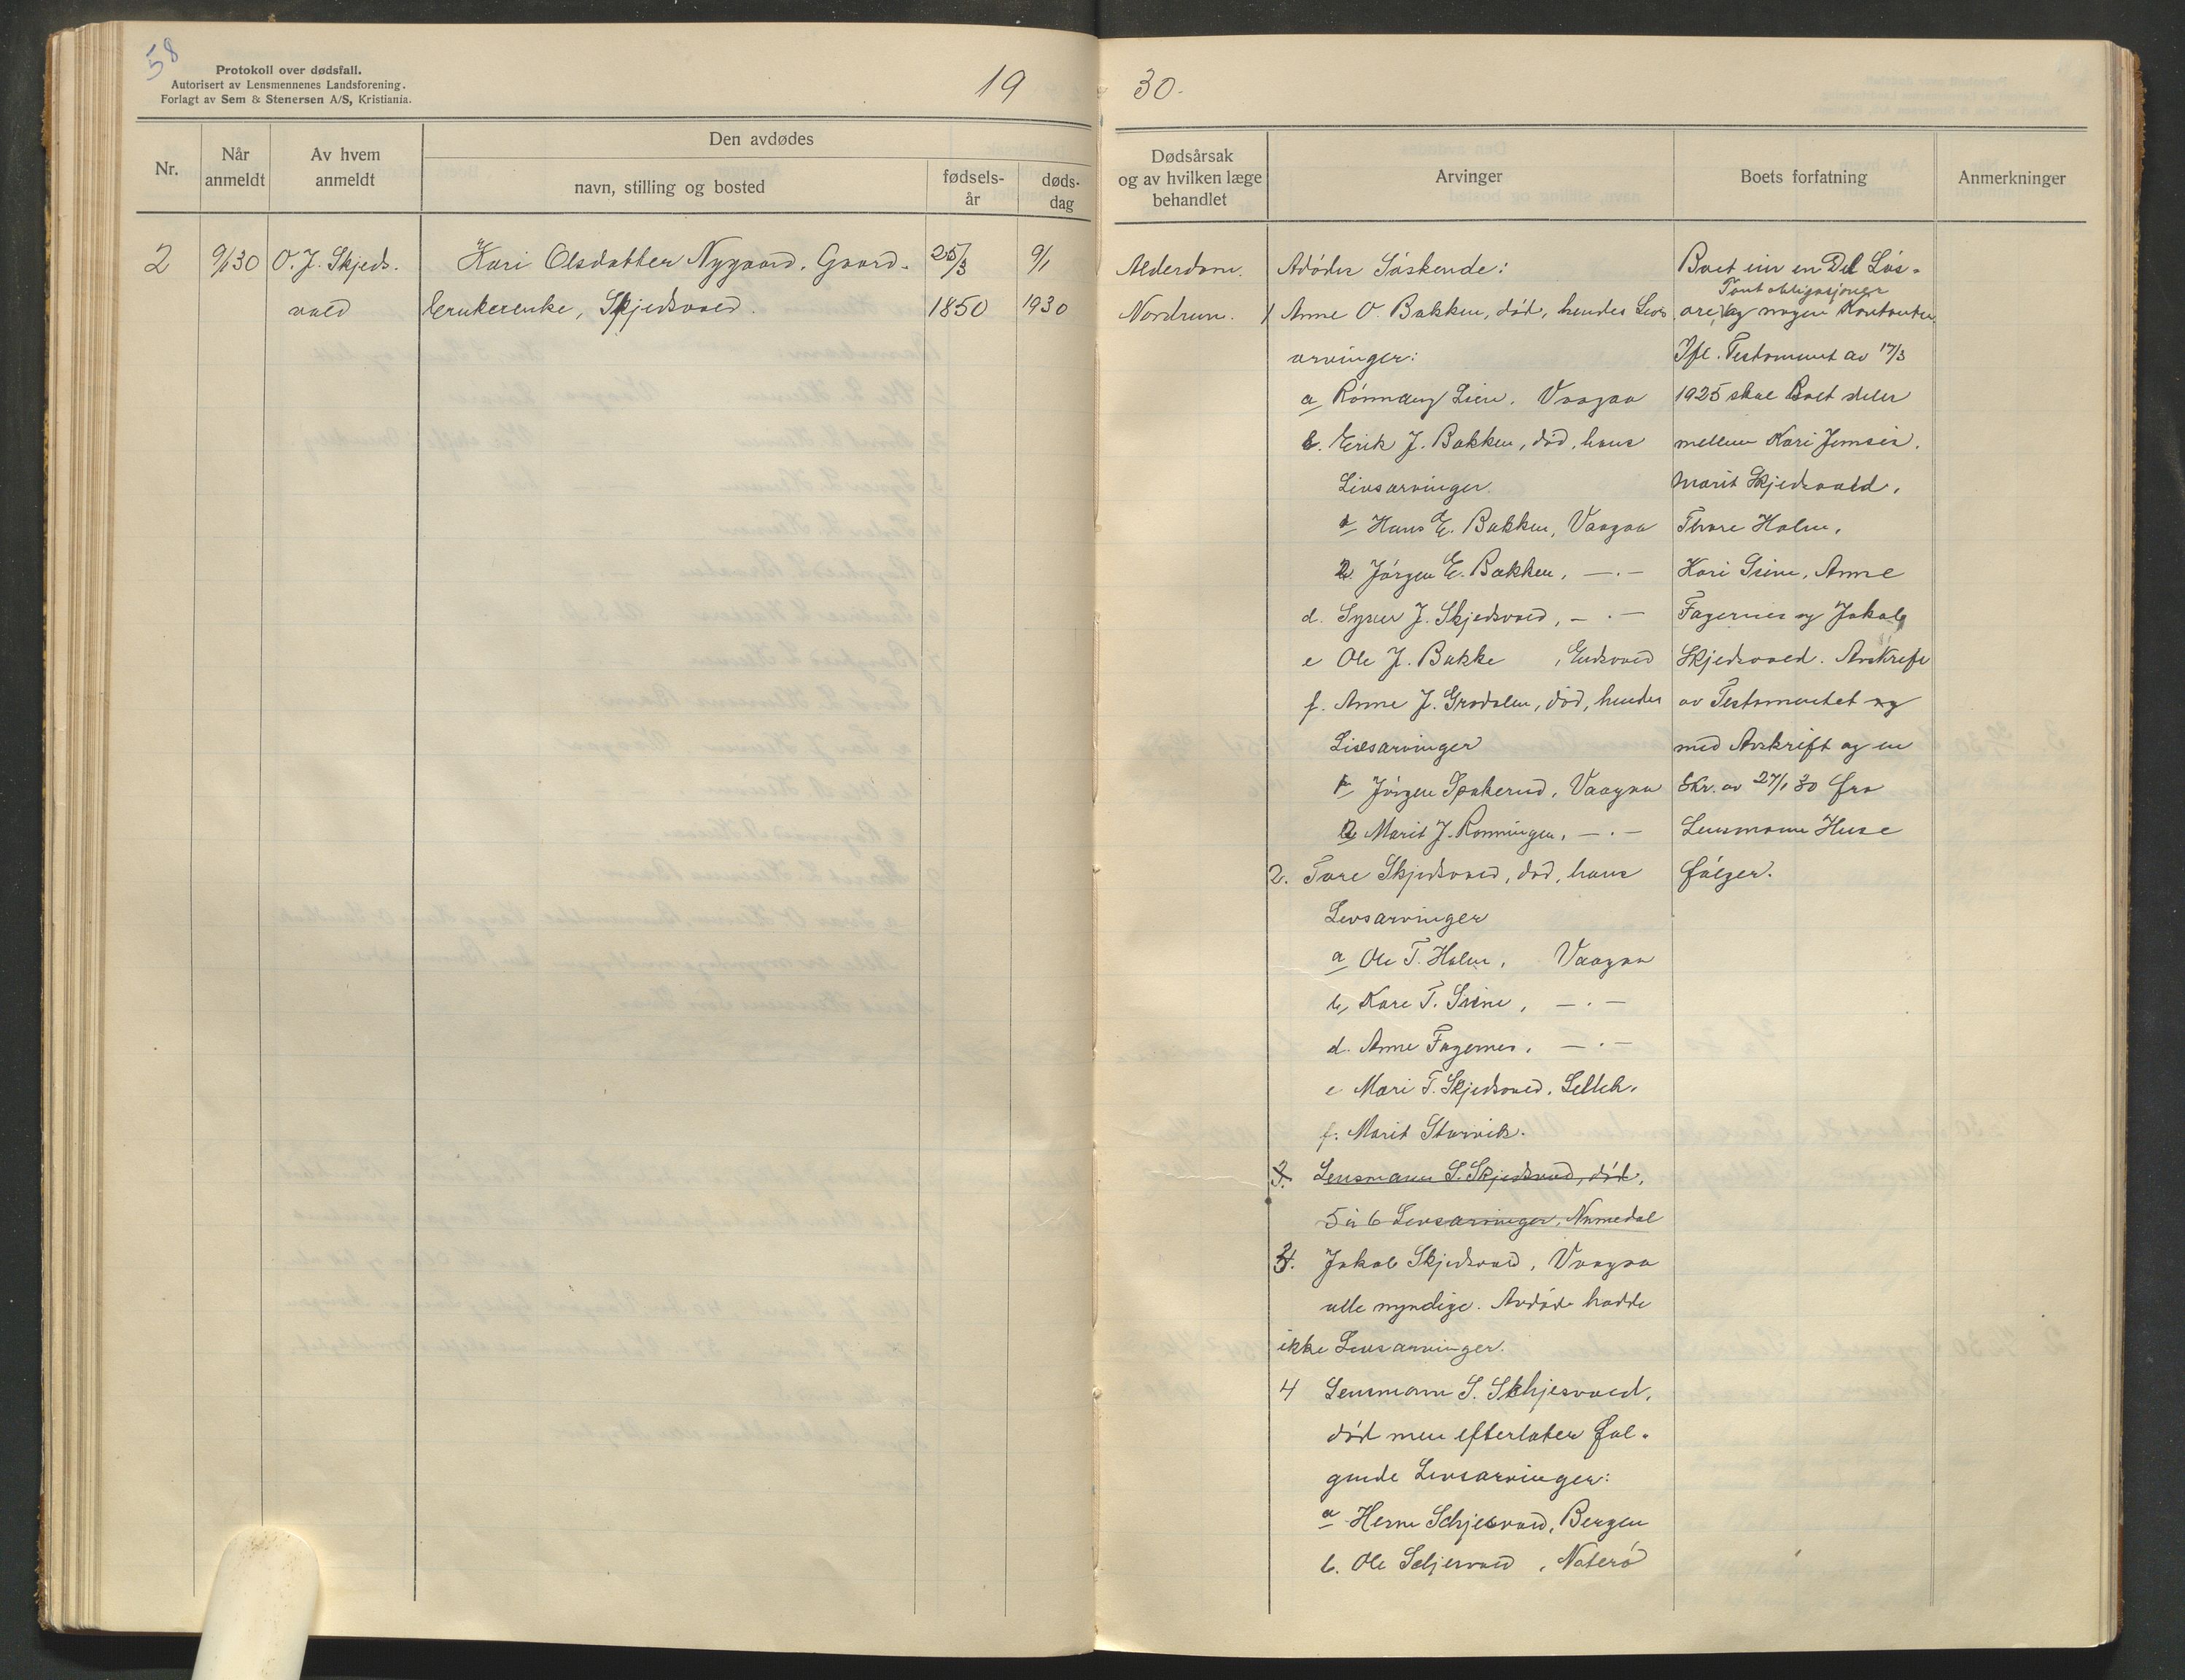 58
Protokoll over dødsfall.
Autorisert av Lensmennenes Landsforening.
Forlagt av Sem & Stenersen A/S, Kristiania.
19
30.
Nr.
Når anmeldt
Av hvem anmeldt
Den avdødes
navn, stilling og bosted
fødsels-år
døds-dag
Dødsårsak og av hvilken læge behandlet
Arvinger
Boets forfatning
Anmerkninger
2
9/1 30
O. J. Skjeds-
vold
Kari Olsdatter Nygaard. Gaard-
brukerenke, Skjedsvold.
25/3
1850
9/1
1930
Alderdom.
Nordrum.
Adødes Søskende:
1 Anne O. Bakken, død, hendes Livs
arvinger:
a Rønnaug Lien. Vaagaa
b. Erik J. Bakken, død, hans
Livsarvinger.
1 Hans E. Bakken, Vaagaa
2. Jørgen E. Bakken, —.—
d. Syver J. Skjedsvold, —.—
e Ole J. Bakke, Eidsvold
f. Anne J. Grodalen, død, hendes
Livsarvinger
1 Jørgen Spakerud, Vaagaa
2 Marit J. Rønningen, —.—
2. Tore Skjedsvold, død, hans
Livsarvinger
a Ole T. Holm, Vaagaa
b, Kare T. Sveine, —.—
d. Anne Fagernes. —.—
e Mari T. Skjedsvold, Lilleh.
f. Marit Storvik.
3. Lensmann S. Skjedsvold, død,
5 à 6 Livsarvinger, Numedal
3. Jakob Skjedsvold, Vaagaa
alle myndige. Avdøde hadde
ikke Livsarvinger.
4 Lensmann S. Skhjesvold,
død men efterlater føl-
gende Livsarvinger:
a Herm Schjesvold, Bergen
b. Ole Schjesvold, Nøterø
Boet eier en Del Løs-
Pantobligasjoner
øre, og nogen Kontanter.
Ifl. Testament av 17/3
1925 skal Boet deles
mellem Kari Jemsis,
Marit Skjedsvold,
Thore Holm,
Kari Sveine, Anne
Fagernes og Jakob
Skjedsvold. Avskrift
av Testamentet og
med Avskrift og en
Skr. av 27/1 30 fra
Lensmann Huse
følger.